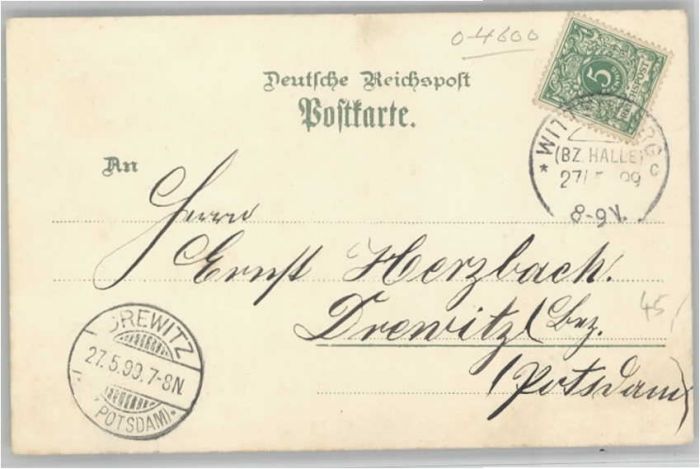 0-4600
Deutsche Reichspost
Postkarte.
5
REICHSPOST
(BZ. HALLE) c
27/5 99
8-9V.
An
Herrn
Ernst Herzbach.
Drewitz (bez.
Potsdam)
45
DREWITZ
27.5.99.7-8N.
(POTSDAM)